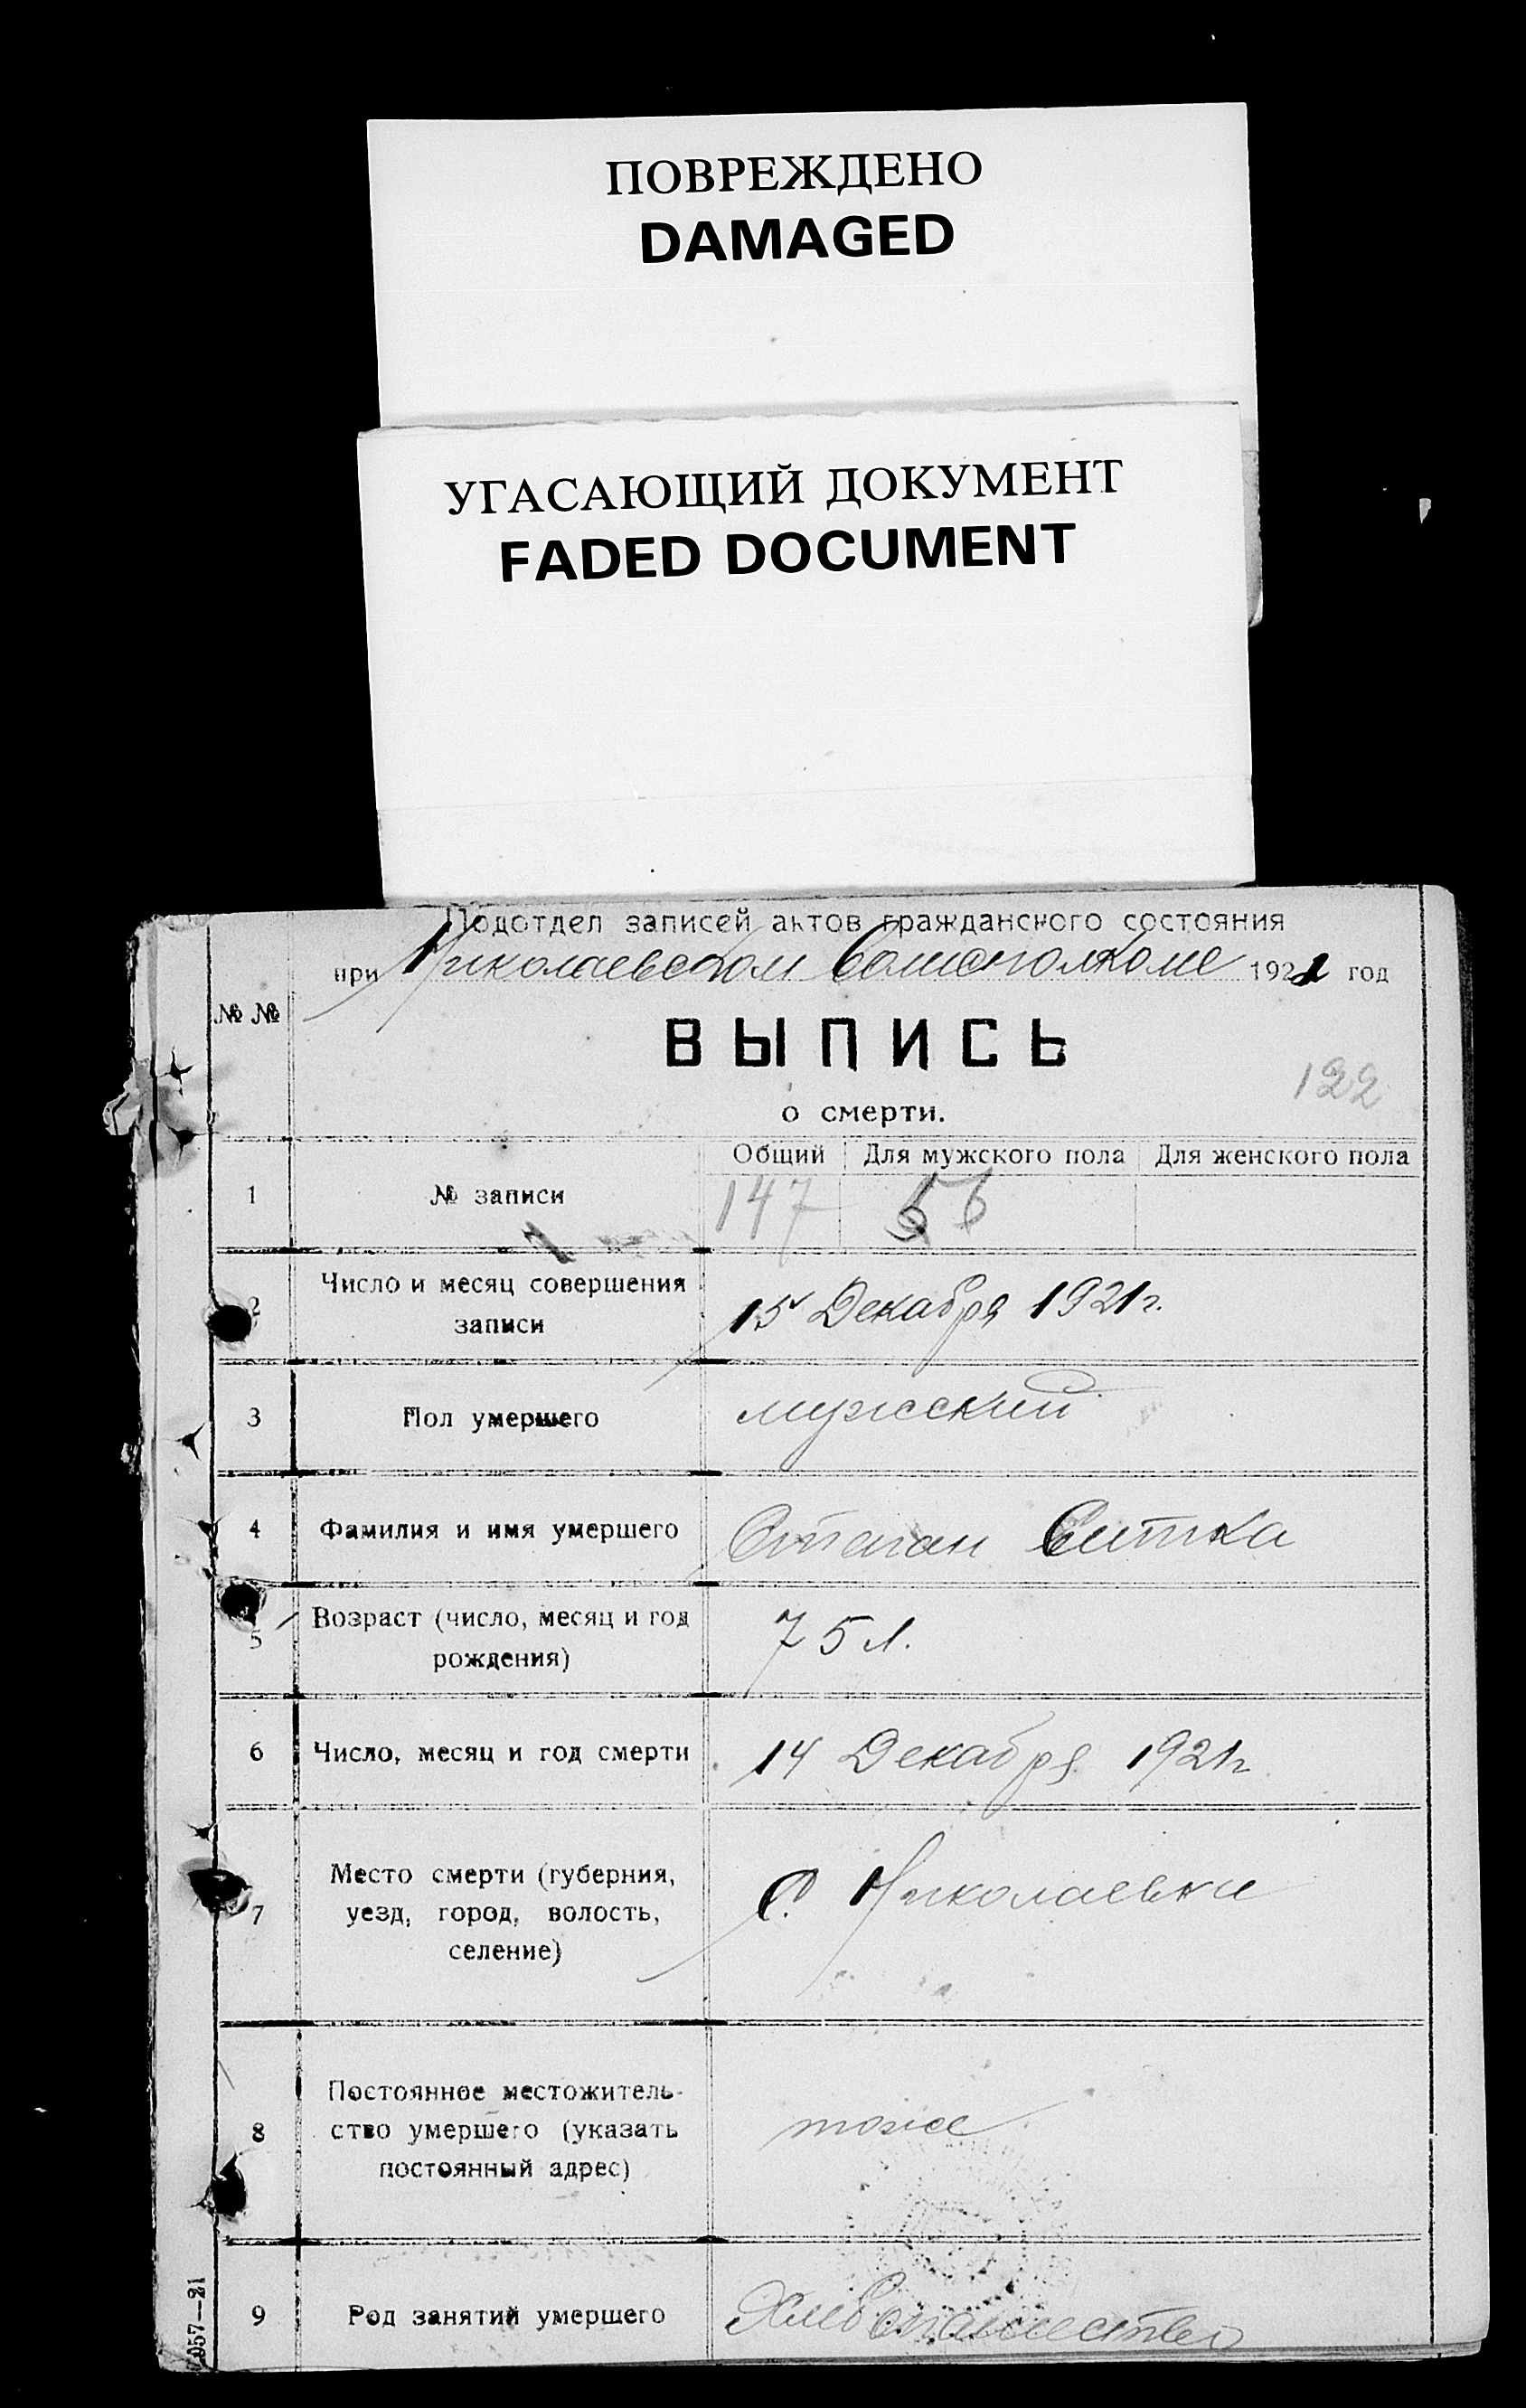 ПОВРЕЖДЕНО
DAMAGED
УГАСАЮЩИЙ ДОКУМЕНТ
FADED DOCUMENT
Подотдел записей актов гражданского состояния
при Николаевском Волисполкоме 1921 год
№ №
ВЫПИСЬ
122
о смерти.
Общий Для мужского пола Для женского пола
1 № записи 147 56
2 Число и месяц совершения
записи
15 Декабря 1921 г.
3 Пол умершего мужский
4 Фамилия и имя умершего Ситка
5 Возраст (число, месяц и год
рождения)
75 л.
6 Число, месяц и год смерти 14 Декабря 1921 г
7 Место смерти (губерния,
уезд, город, волость,
селение)
С. Николаевка
8 Постоянное местожитель-
ство умершего (указать
постоянный адрес)
тоже
9 Род занятий умершего Хлебопашество
057—21